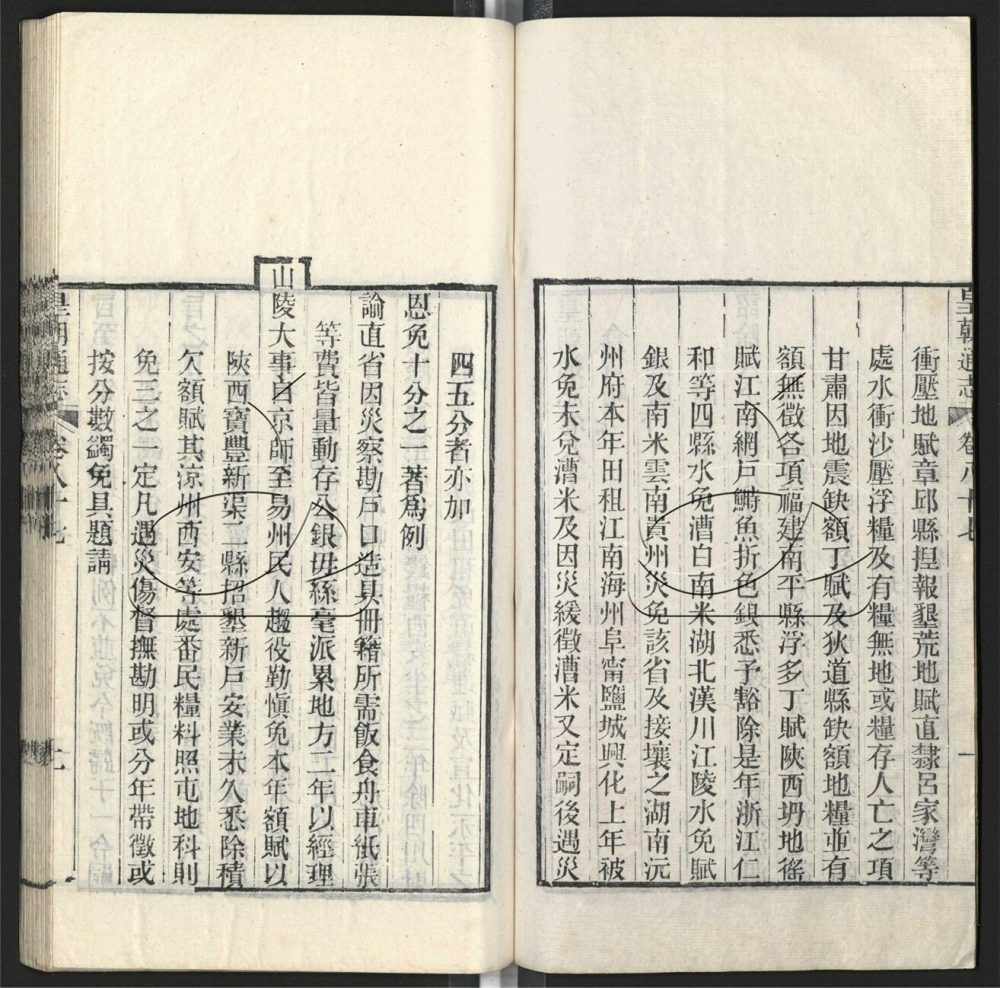 皇朝通志 卷八十七
衝壓地賦章邱縣捏報墾荒地賦直隸呂家灣等
處水衝沙壓浮糧及有糧無地或糧存人亡之項
甘肅因地震缺額丁賦及狄道縣缺額地糧並有
額無徵各項福建南平縣浮多丁賦陝西坍地徭
賦江南網戶鰣魚折色銀悉予豁除是年浙江仁
和等四縣水免漕白南米湖北漢川江陵水免賦
銀及南米雲南貴州災免該省及接壤之湖南沅
州府本年田租江南海州阜甯鹽城興化上年被
水免未兌漕米及因災緩徵漕米又定嗣後遇災
四五分者亦加
恩免十分之一著為例
諭直省因災察勘戶口造具冊籍所需飯食舟車紙張
等費皆量動存公銀毋絲毫派累地方二年以經理
山陵大事自京師至易州民人趨役勤慎免本年額賦以
陝西寶豐新渠二縣招墾新戶安業未久悉除積
欠額賦其涼州西安等處番民糧料照屯地科則
免三之一定凡遇災傷督撫勘明或分年帶徵或
按分數蠲免具題請
皇朝通志 卷八十七